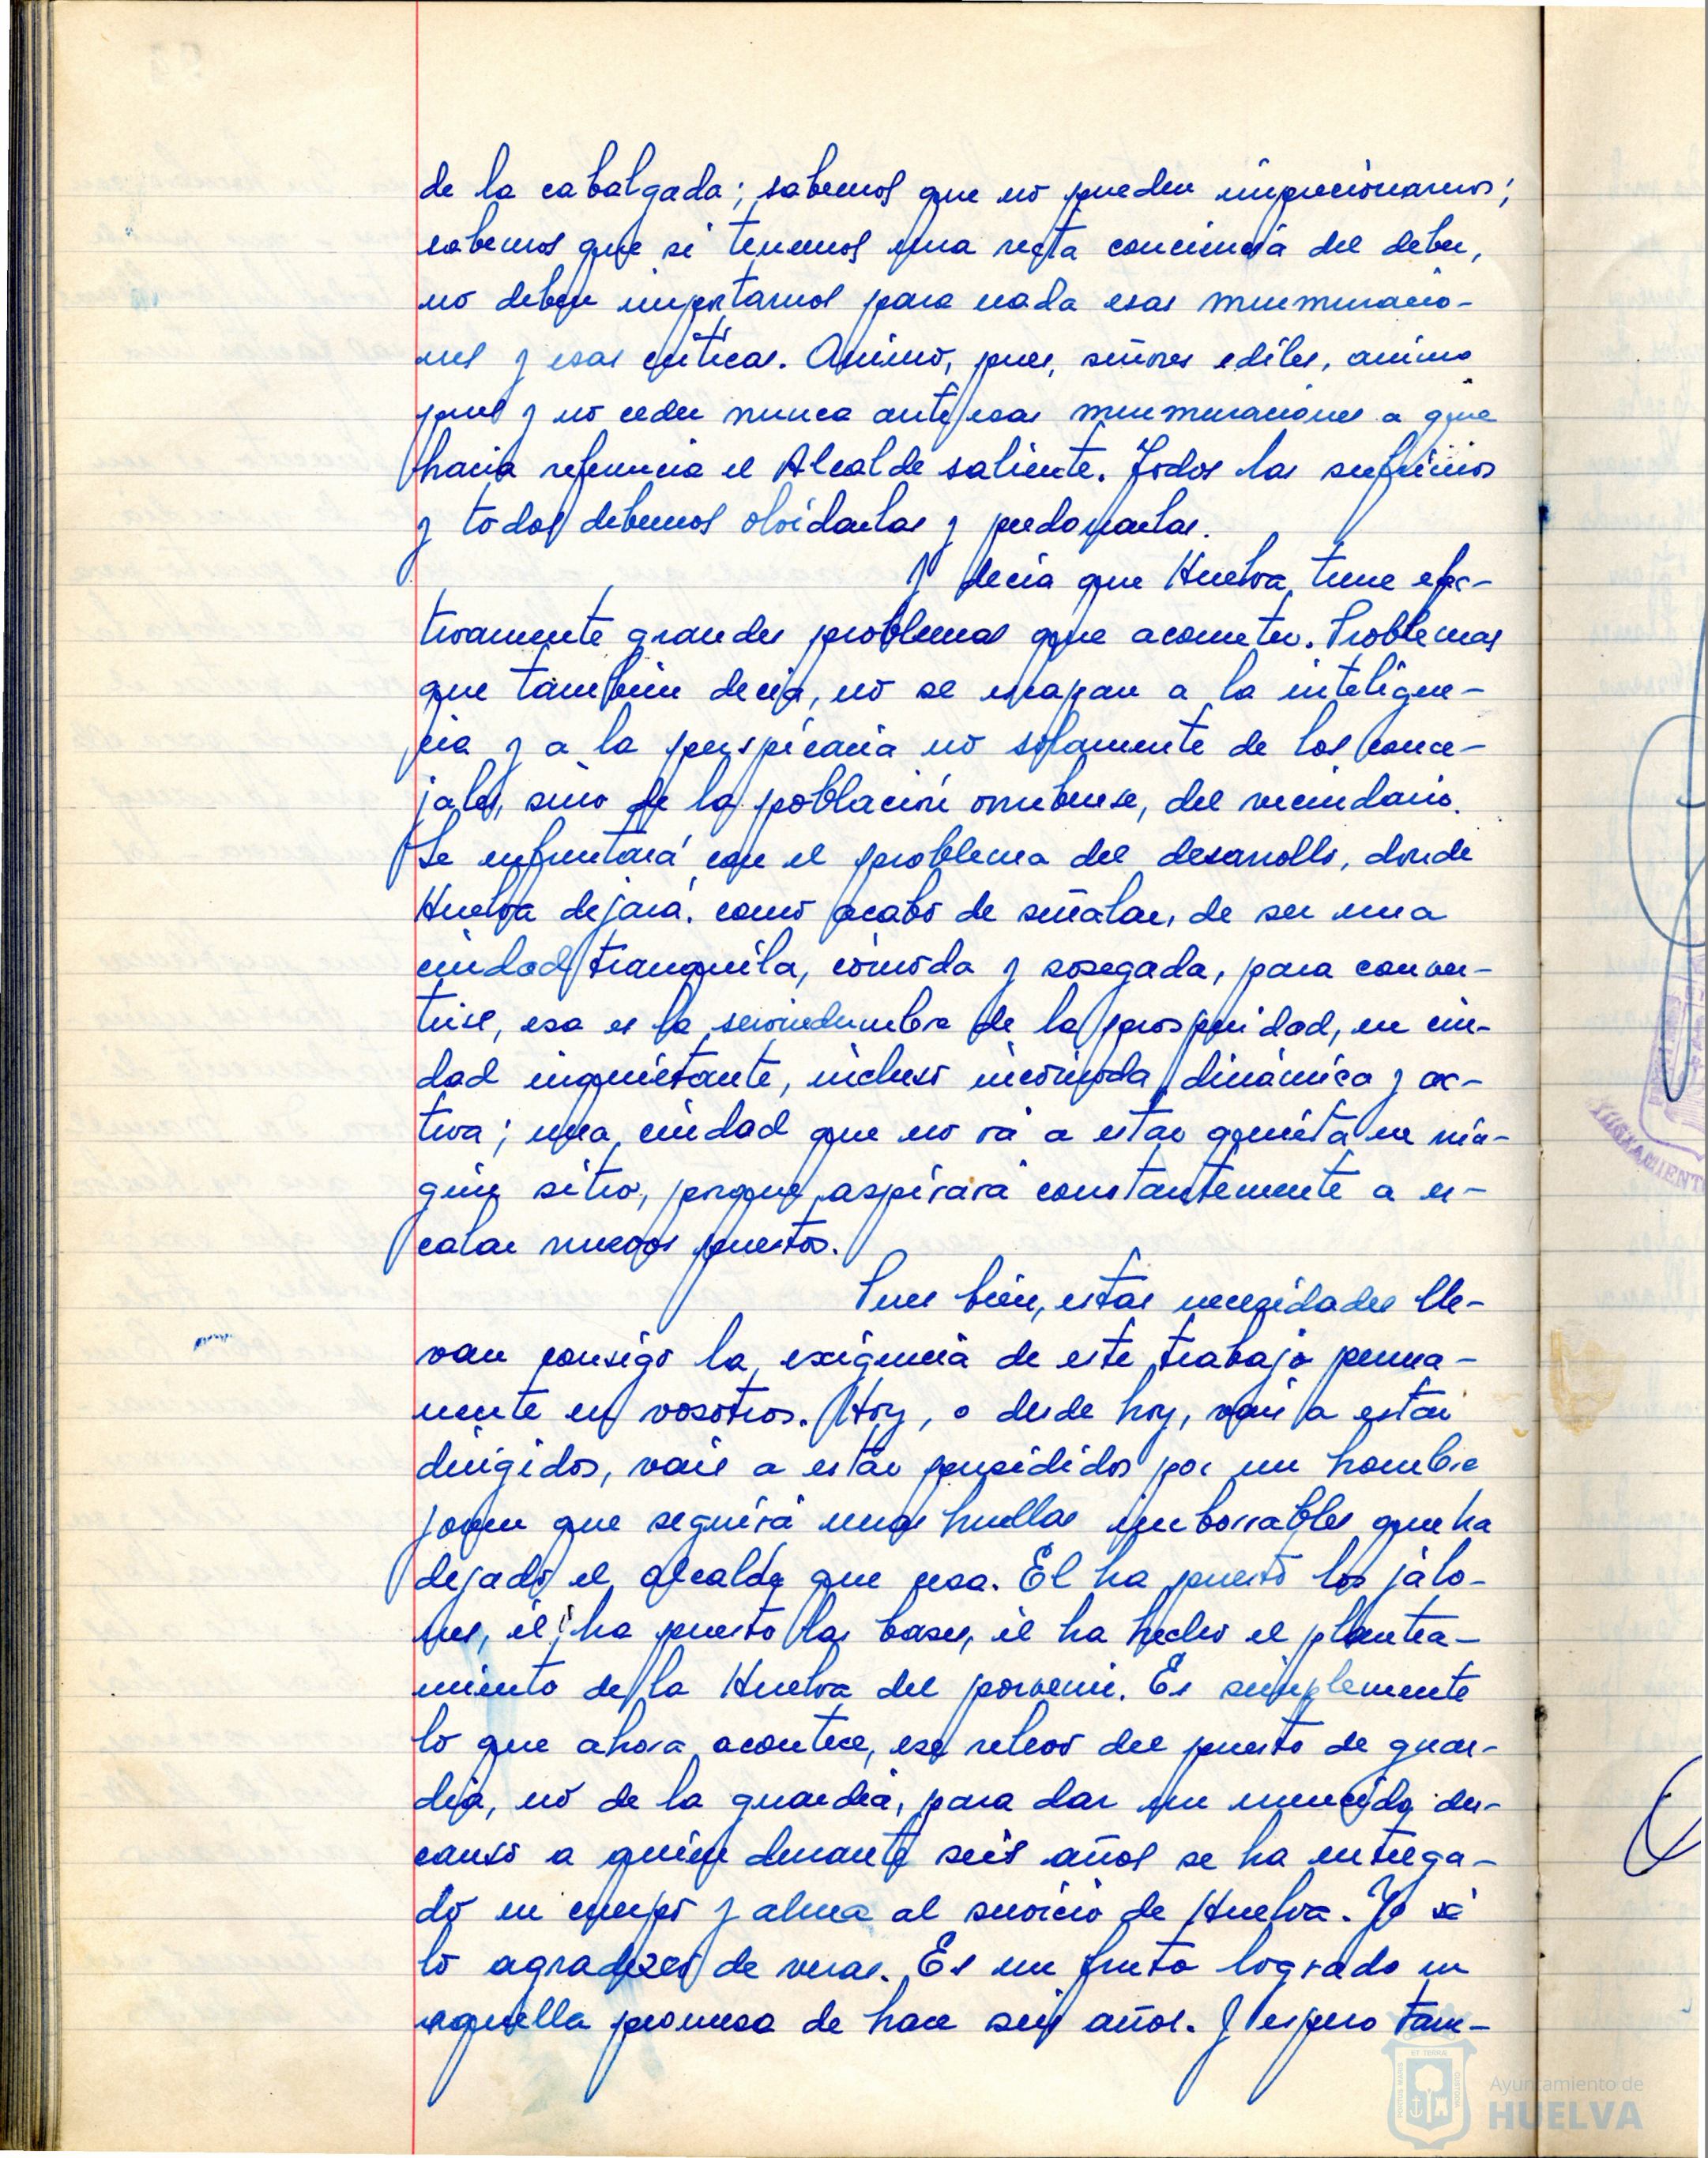 de la cabalgada; sabemos que no pueden impresionarnos;
sabemos que si tenemos una recta conciencia del deber,
no deben importarnos para nada esas murmuracio-
nes y esas críticas. Animo, pues, señores ediles, animo
pues y no ceder nunca ante esas murmuraciones a que
hacia referencia el Alcalde saliente. Todos las sufrimos
y todos debemos olvidarlas y perdonarlas.
Y decia que Huelva tiene efec-
tivamente grandes problemas que acometer. Problemas
que tambien decia, no se escapan a la inteligen-
cia y a la perspicacia no solamente de los conce-
jales, sino de la población onubense, del vecindario.
Se enfrentará con el problema del desarrollo, donde
Huelva dejará, como acabo de señalar, de ser una
ciudad tranquila, cómoda y sosegada, para conver-
tirse, esa es la servidumbre de la prosperidad, en ciu-
dad inquietante, incluso incómoda, dinámica y ac-
tiva; una ciudad que no va a estar quieta en nin-
gún sitio, porque aspirará constantemente a es-
calar nuevos puestos.
Pues bien, estas necesidades lle-
van consigo la exigencia de este trabajo perma-
nente en vosotros. Hoy, o desde hoy, vais a estar
dirigidos, vais a estar presididos por un hombre
joven que seguirá unas huellas imborrables que ha
dejado el alcalde que cesa. El ha puesto los jalo-
nes, él ha puesto las bases, él ha hecho el plantea-
miento de la Huelva del porvenir. Es simplemente
lo que ahora acontece, ese relevo del puesto de guar-
dia, no de la guardia, para dar un merecido des-
canso a quien durante seis años se ha entrega-
do en cuerpo y alma al servicio de Huelva. Yo sé
lo agradezco de veras. Es un fruto logrado en
aquella promesa de hace seis años. Y espero tam-
AYUNTAMIENTO
Ayuntamiento de
HUELVA